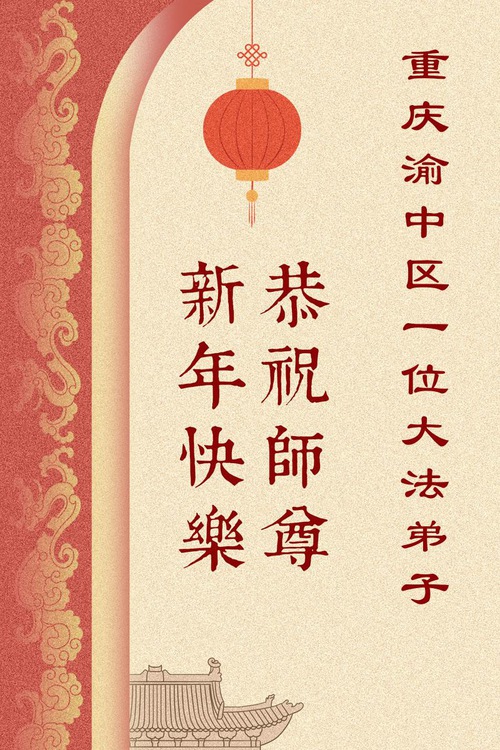 重庆渝中区一位大法弟子
恭祝師尊
新年快樂